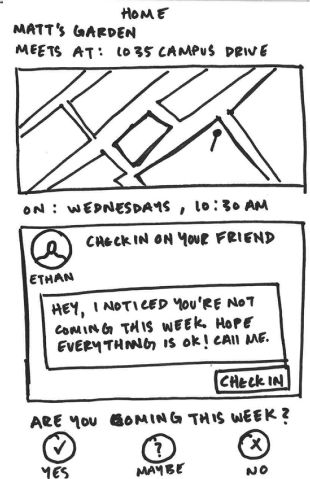 HOME
MATT'S GARDEN
MEETS AT: 1035 CAMPUS DRIVE
ON: WEDNESDAYS, 10:30 AM
CHECK IN ON YOUR FRIEND
ETHAN
HEY, I NOTICED YOU'RE NOT
COMING THIS WEEK. HOPE
EVERYTHING IS OK! CALL ME.
CHECK IN
ARE YOU COMING THIS WEEK?
✓ ? X
YES MAYBE NO